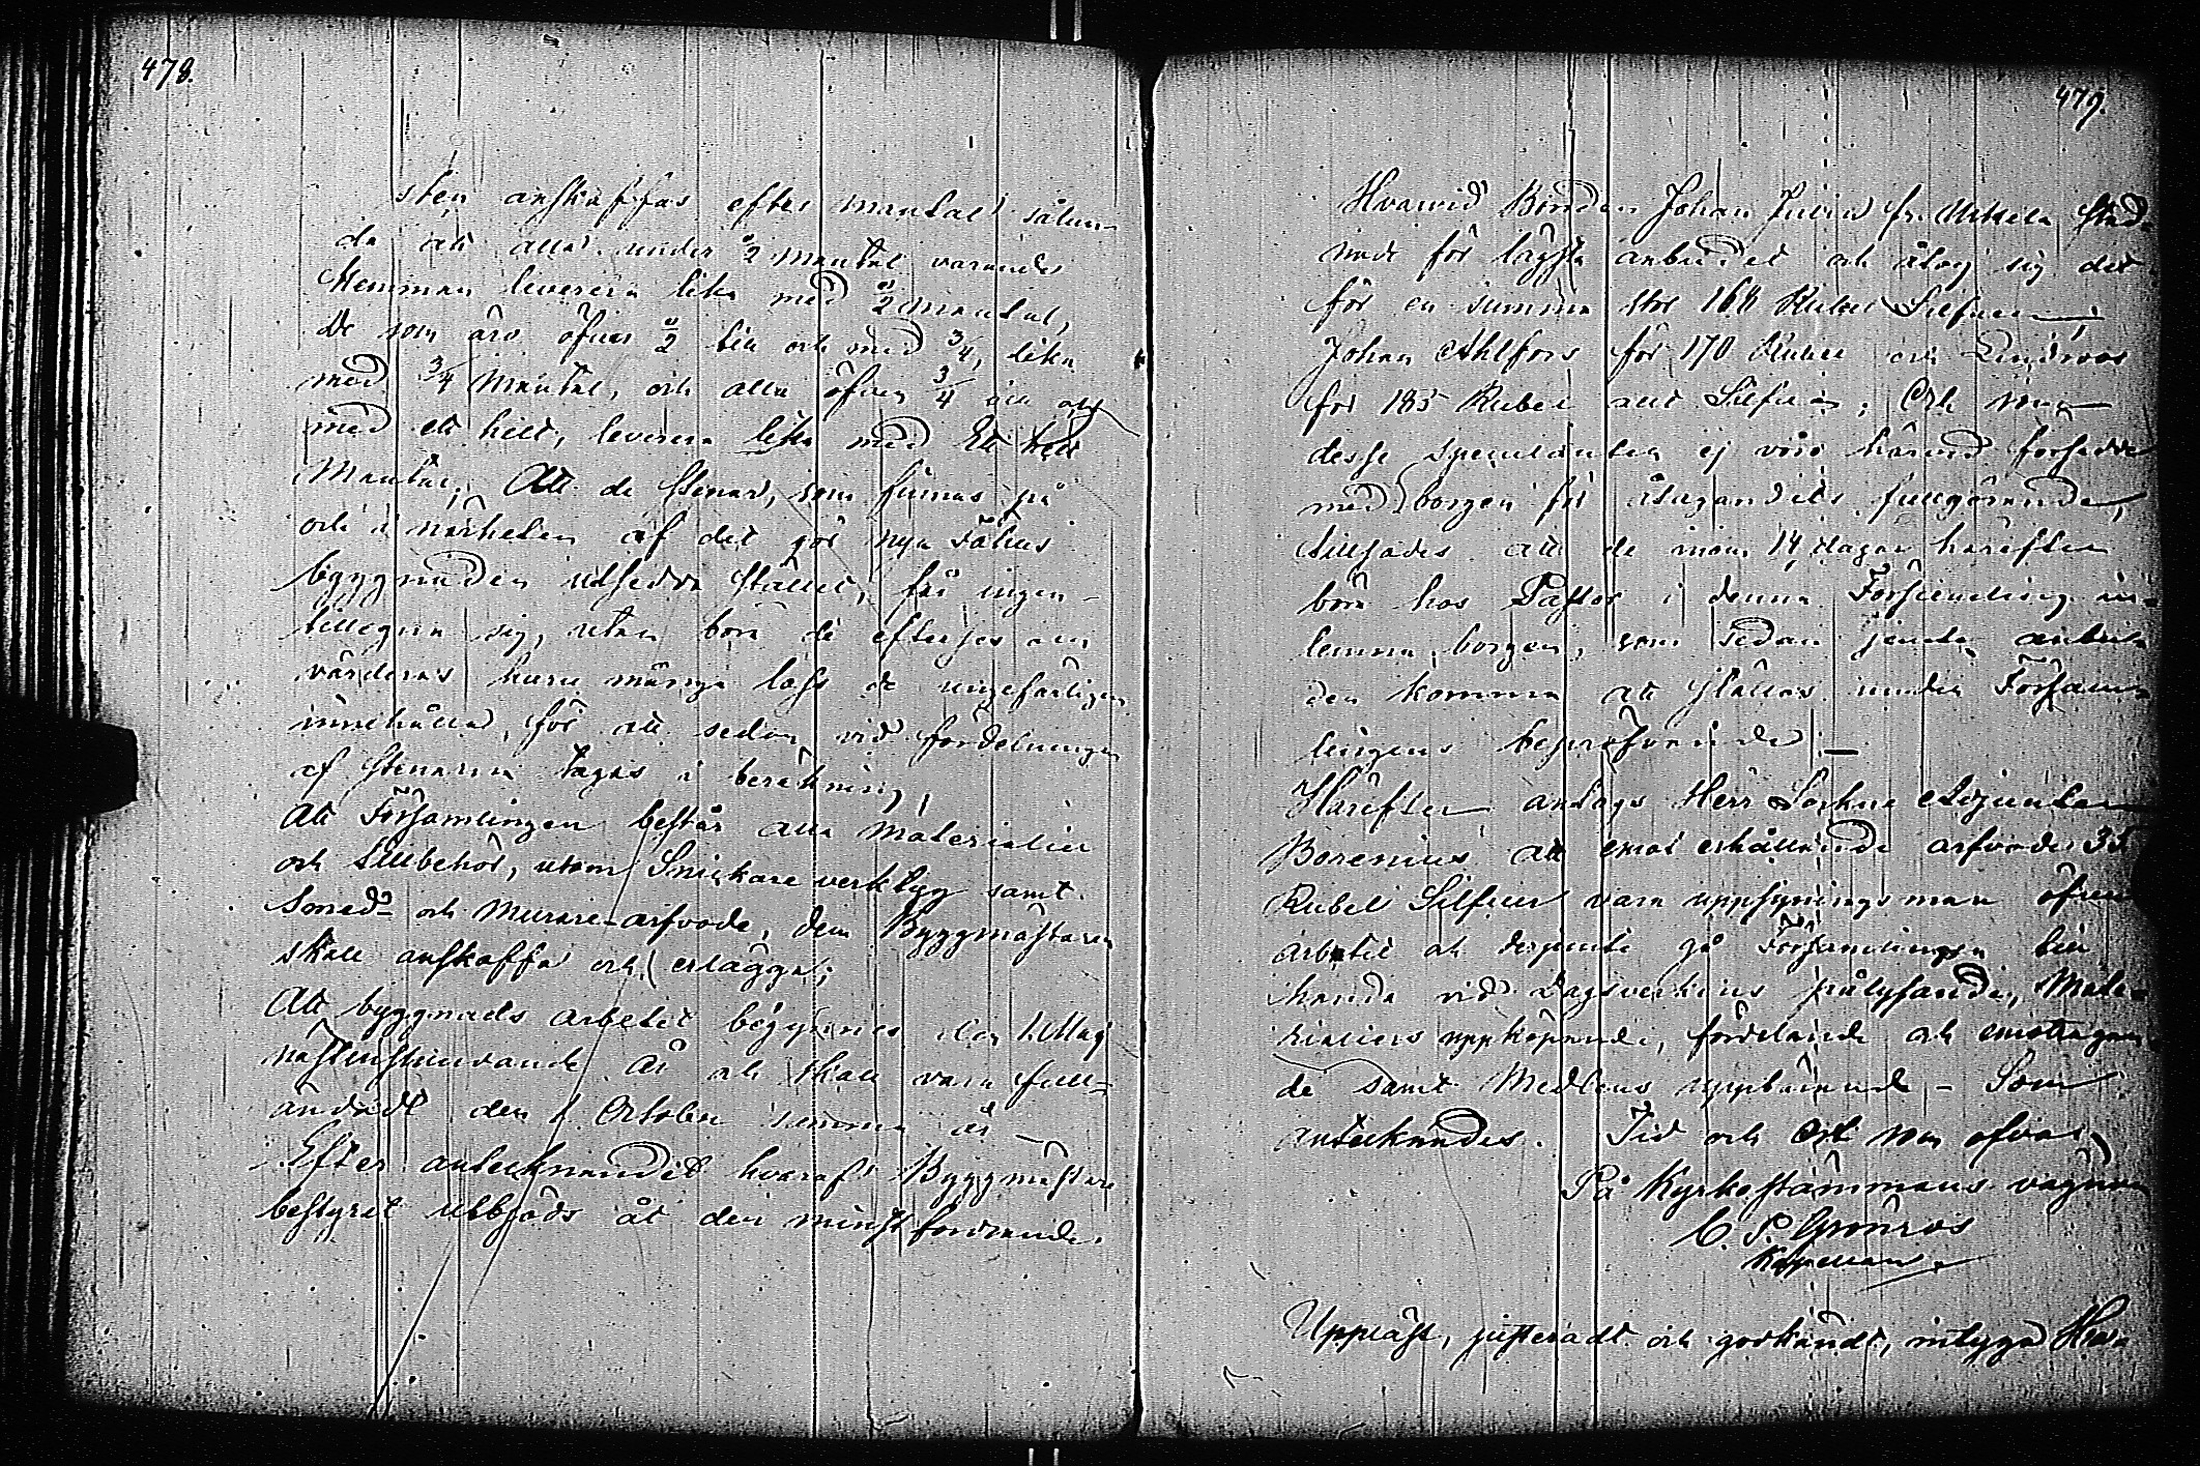 478.
sten anskaffas efter mantal sålun-
da att alla under ½ mantal varande
Hemman leverera lika med ½ mantal,
De som äro öfver ½ till och med ¾, lika
med ¾ Mantal, och alla öfver ¾ till och
med ett helt, leverera lika med Ett helt
Mantal; Att de stenar, som finnas på
och i närheten af det för nya Tälus
byggnaden utsedda stället, får ingen
tillegna sig, utan böra de efterses och
värderas huru många lass de ungefärligen
innehålla, för att sedan vid fördelningen
af stenarne tagas i beräkning;
Att Församlingen består alla Materialier
och tillbehör, utom Snickare verktyg samt
Smed- och Murare-arfvode, dem Byggmästaren
skall anskaffa och erlägga;
Att byggnads arbetet begynnes den 1 Maj
nästinstundande År och skall vara full-
ändadt den 1 October samma år –
Efter antecknandet hvaraf Byggmästare
bestyret utbjöds åt den minst fordrande.
479.
Hvarvid Bonden Johan Julin fr. stad-
nade för lägsta anbudet och åtog sig det
för en summa stor 168 Rubel Silfver;
Johan Ahlfors för 170 Rubel och Lindroos
för 185 Rubel allt Silfver; Och som
desse speculanter ej voro härvid försedde
med borgen för åtagandets fullgörande,
tillsades att de inom 14 dagar härefter
böra hos Pastor i denna Församling in-
lemna borgen, som sedan jemte anbu-
den komma att ställas under Försam-
lingens bepröfvande. —
Härefter antogs Herr Sockne Adjuncten
Borenius att emot erhållande arfvode 35
Rubel Silfver vara uppsyningsman öfver
arbetet och derjemte gå Församlingen till
handa vid Dagsverkens pålysande, Mate-
rialiers uppköpande, fördelande och emottagan-
de samt Medlens uppbärande – Som
antecknades. Tid och Ort som ofvan
På Kyrkostämmans vägnar
C. P. Grönroos
Kappellan.
Uppläst, justeradt och godkändt, intyga